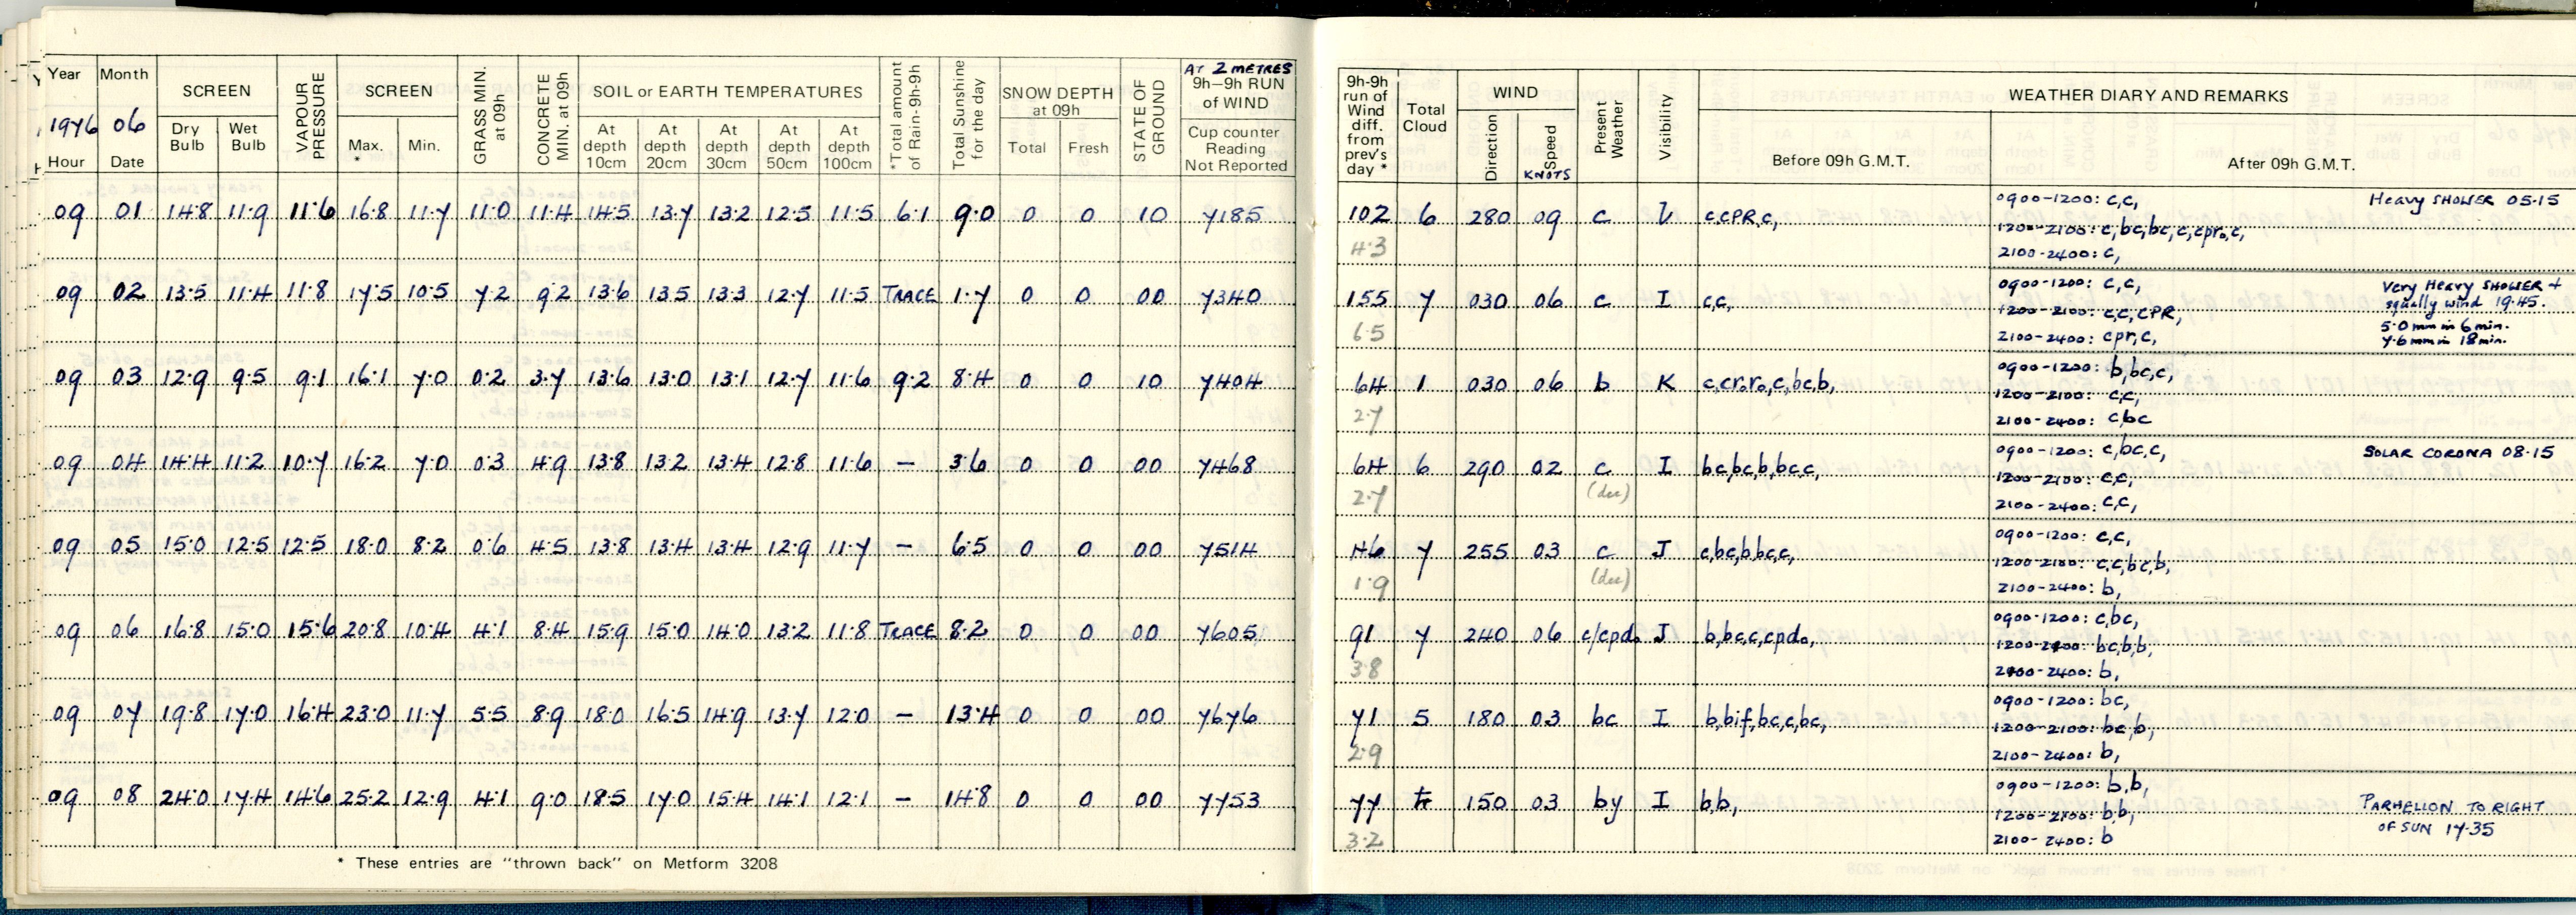 Year Month SCREEN VAPOUR PRESSURE SCREEN GRASS MIN. at 09h CONCRETE MIN. at 09h SOIL or EARTH TEMPERATURES *Total amount of Rain-9h-9h Total Sunshine for the day SNOW DEPTH at 09h STATE OF GROUND AT 2 METRES 9h-9h RUN of WIND
1976 06 Dry Bulb Wet Bulb Max. * Min. At depth 10cm At depth 20cm At depth 30cm At depth 50cm At depth 100cm Total Fresh Cup counter Reading Not Reported
Hour Date
09 01 14.8 11.9 11.6 16.8 11.7 11.0 11.4 14.5 13.7 13.2 12.5 11.5 6.1 9.0 0 0 10 7185
09 02 13.5 11.4 11.8 17.5 10.5 7.2 9.2 13.6 13.5 13.3 12.7 11.5 TRACE 1.7 0 0 00 7340
09 03 12.9 9.5 9.1 16.1 7.0 0.2 3.7 13.6 13.0 13.1 12.7 11.6 9.2 8.4 0 0 10 7404
09 04 14.4 11.2 10.7 16.2 7.0 0.3 4.9 13.8 13.2 13.4 12.8 11.6 — 3.6 0 0 00 7468
09 05 15.0 12.5 12.5 18.0 8.2 0.6 4.5 13.8 13.4 13.4 12.9 11.7 — 6.5 0 0 00 7514
09 06 16.8 15.0 15.6 20.8 10.4 4.1 8.4 15.9 15.0 14.0 13.2 11.8 TRACE 8.2 0 0 00 7605
09 07 19.8 17.0 16.4 23.0 11.7 5.5 8.9 18.0 16.5 14.9 13.7 12.0 — 13.4 0 0 00 7676
09 08 24.0 17.4 14.6 25.2 12.9 4.1 9.0 18.5 17.0 15.4 14.1 12.1 — 14.8 0 0 00 7753
* These entries are "thrown back" on Metform 3208
9h-9h run of Wind diff. from prev's day * Total Cloud WIND Present Weather Visibility WEATHER DIARY AND REMARKS
Direction Speed KNOTS Before 09h G.M.T. After 09h G.M.T.
0900-1200: c,c, Heavy SHOWER 05.15
102 6 280 09 c c,cPR,c,
1200-2100: c,bc,bc,c,cpr₀,c,
4.3 2100-2400: c,
0900-1200: c,c, Very Heavy SHOWER +
155 7 030 06 c I c,c, squally wind 19.45.
1200-2100: c,c,cPR,
6.5 5.0 mm in 6 min.
2100-2400: cpr,c, 7.6 mm in 18 min.
0900-1200: b,bc,c,
64 1 030 06 b K c,cr₀r₀,c,bc,b,
1200-2100: c,c,
2.7 2100-2400: c,bc
0900-1200: c,bc,c, SOLAR CORONA 08.15
64 6 290 02 c I bc,bc,b,bc,c,
1200-2100: c,c,
2.7 (dew) 2100-2400: c,c,
0900-1200: c,c,
46 7 255 03 c J c,bc,b,bc,c,
1200-2100: c,c,bc,b,
1.9 (dew) 2100-2400: b,
0900-1200: c,bc,
91 7 240 06 c/cpd₀ J b,bc,c,cpd₀,
1200-2100: bc,b,b,
3.8 2100-2400: b,
0900-1200: bc,
71 5 180 03 bc I b,bif,bc,c,bc,
1200-2100: bc,b,
2.9 2100-2400: b,
0900-1200: b,b,
77 150 03 by I b,b, PARHELION TO RIGHT
1200-2100: b,b,
OF SUN 17.35
3.2 2100-2400: b